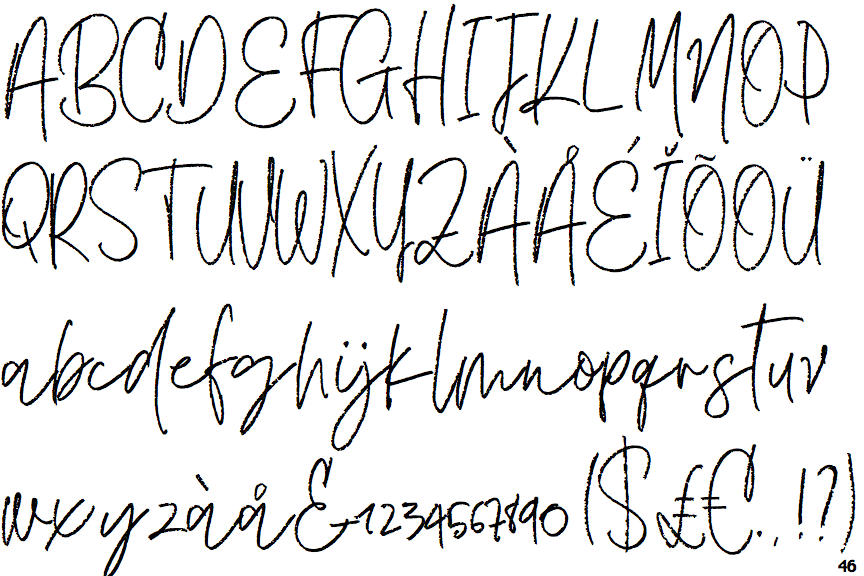 ABCDEFGHIJKLMNOP
QRSTUVWXYZÀÅÉÎÕOÜ
abcdefghijklmnopqrstuv
wxyzàå&1234567890($£€.,!?)
46